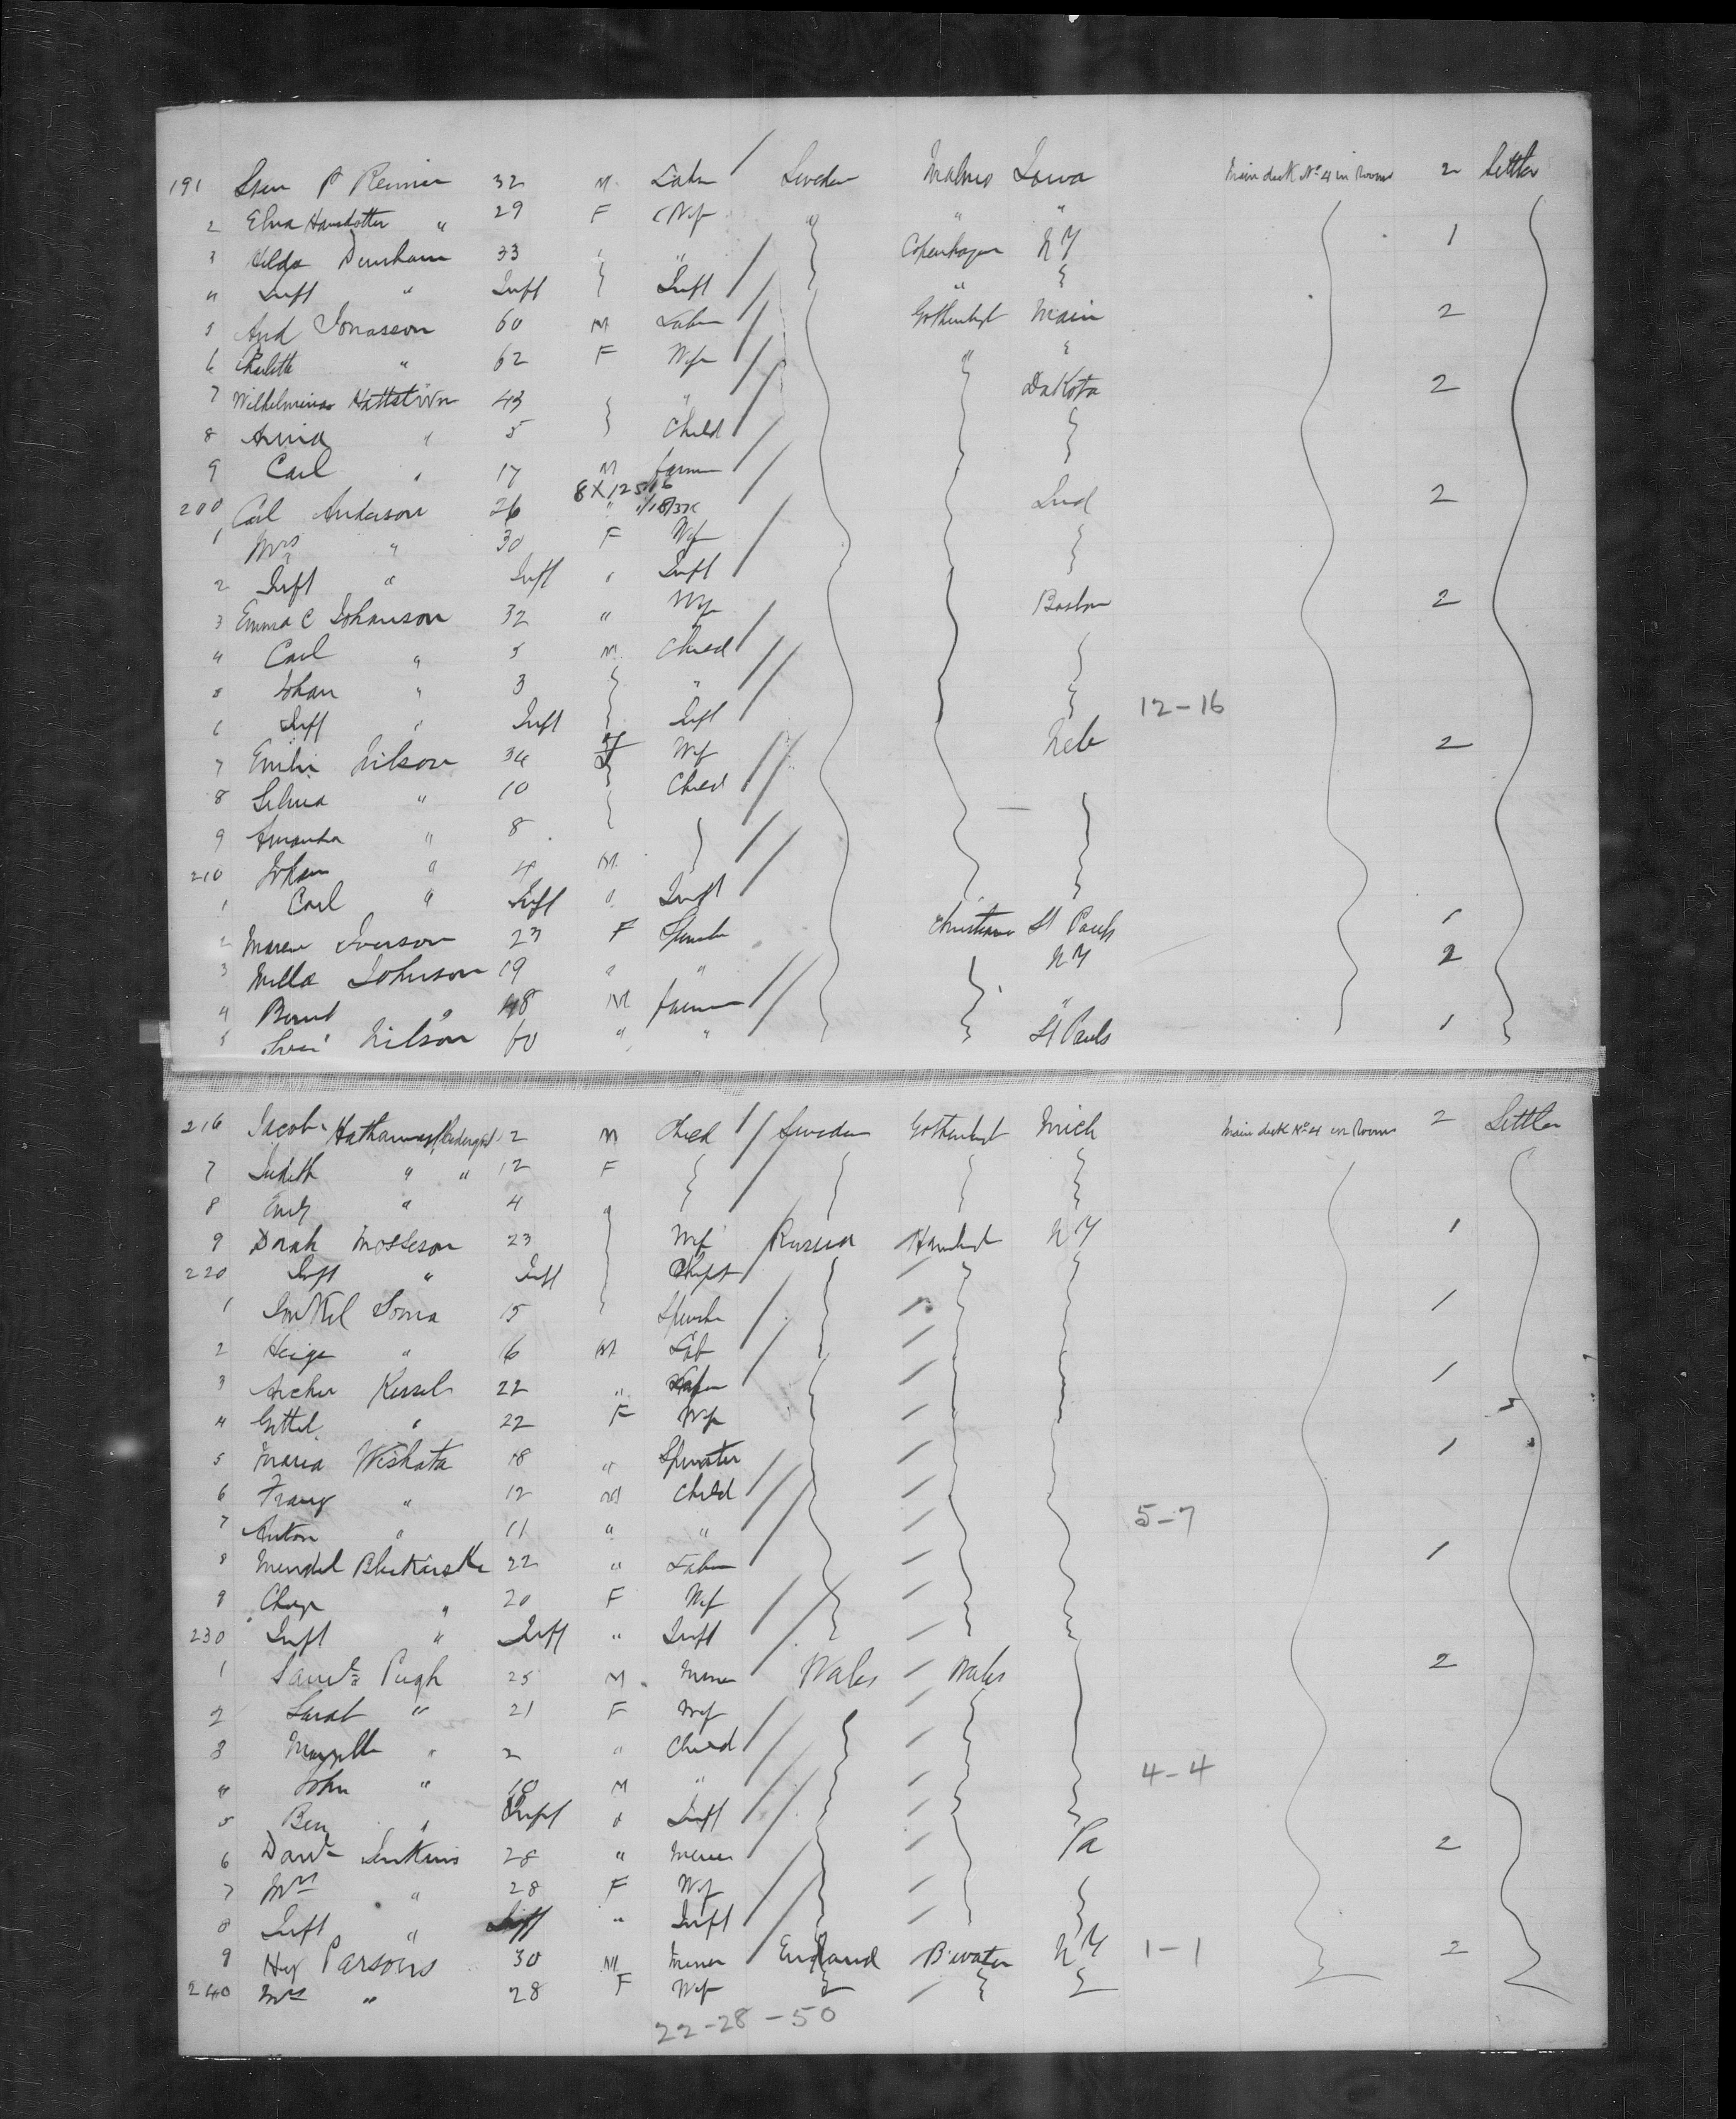 191 Sven P Reimer 32 M Labr Sweden Malmo Iowa Main deck No 4 in Room 2 Settler
2 Elna Hansdotter " 29 F Wife " " "
3 Hilda Dunham 33 " " Copenhagen N Y 1
4 Inft " Inft Inft "
5 And Jonasson 60 M Labr Gothenbgt Main 2
6 Charlotte " 62 F Wife "
7 Wilhelmina 43 " Dakota 2
8 " 5 Child
9 Carl " 17 M farmer
8 X 12 5/16
200 Carl Anderson 26 " Ind 2
1 Mrs " 30 F Wife
2 Inft " Inft " Inft
3 Emma C Johanson 32 " Wife Boston 2
4 Carl " 5 M Child
5 Johan " 3 "
6 Inft " Inft Inft 12-16
7 Emilie Nilson 34 F Wife Neb 2
8 Selma " 10 Child
9 Amanda " 8
210 Johan " 4 M
1 Carl " Inft " Inft
2 Maren Iverson 23 F Spinster Christiana St Pauls 1
3 Milla Johnson 19 " " N Y 2
4 Bernt " 48 M farmer "
5 Nilson 60 " " St Pauls 1
216 Jacob Hathaway 12 M Child Sweden Gothenbgt Mich Main deck No 4 in Room 2 Settler
7 Judith " " 12 F
8 Emily " 4 "
9 Dorah Mosseson 23 Wife Russia Hambgt N Y 1
220 Inft " Inft Inft
1 Sonia 15 Spinster 1
2 " 16 M Lab
3 Kessel 22 " 1
4 Gittel " 22 F Wife
5 Maria Wishata 18 " Spinster 1
6 Franz " 12 M Child
7 Anton " 11 " " 5-7
8 Mendel 22 " Labr 1
9 " 20 F Wife
230 Inft " Inft " Inft
1 Saml Pugh 25 M Miner Wales Wales 2
2 Sarah " 21 F Wife
3 " 2 " Child
4 John " 10 M " 4-4
5 Ben " Inft " Inft
6 Davd Jenkins 28 " Miner Pa 2
7 Mrs " 28 F Wife
8 Inft " Inft " Inft
9 Hy Parsons 30 M Miner England N Y 1-1 2
240 Mrs " 28 F Wife
22-28-50